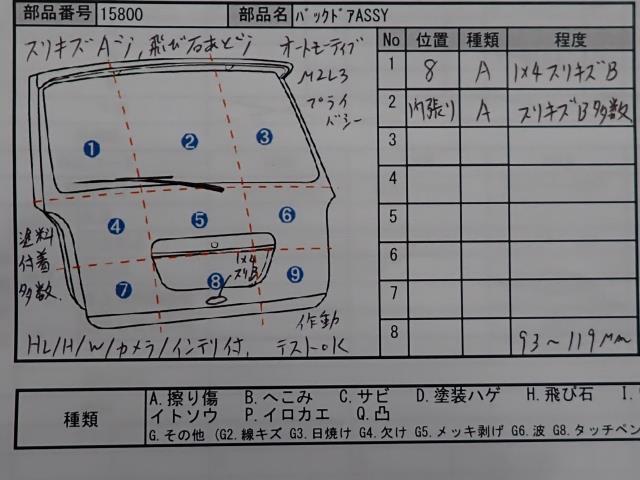 部品番号 15800 部品名 バックドアASSY
スリキズAジ, 飛び石あとジ オートモーティブ
M2L3
プライ
バシー
① ② ③
④ ⑤ ⑥
⑦ ⑧ ⑨
1×4
スリB
塗料
付着
多数.
作動
HL/H/W/カメラ/インテリ付, テストOK
No 位置 種類 程度
1 8 A 1×4スリキズB
2 内張り A スリキズB多数
3
4
5
6
7
8 93～119μm
種類
A.擦り傷 B.へこみ C.サビ D.塗装ハゲ H.飛び石 I.
イトソウ P.イロカエ Q.凸
G.その他 (G2.線キズ G3.日焼け G4.欠け G5.メッキ剥げ G6.波 G8.タッチペン